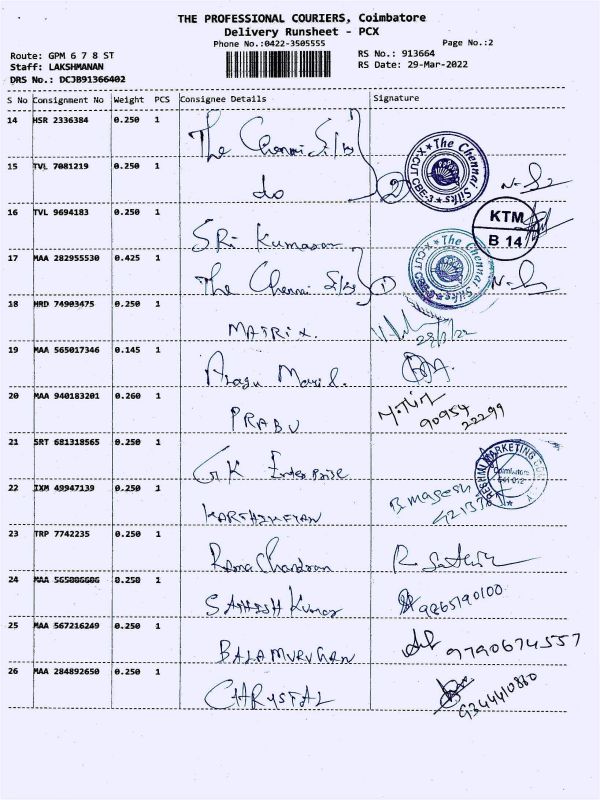 THE PROFESSIONAL COURIERS, Coimbatore
Delivery Runsheet - PCX
Phone No.:0422-3505555
Page No.:2
Route: GPM 6 7 8 ST
RS No.: 913664
Staff: LAKSHMANAN
RS Date: 29-Mar-2022
DRS No.: DCJB91366402
S No Consignment No Weight PCS Consignee Details Signature
14 HSR 2336384 0.250 1 The Chennai Silks
The Chennai Silks X-CUT CBE-3
15 TVL 7081219 0.250 1 do 2
16 TVL 9694183 0.250 1 SRi Kumaran
KTM
B 14
17 MAA 282955530 0.425 1 The Chennai Silks 1
The Chennai Silks X-CUT
18 HRD 74903475 0.250 1 MATRIX
29/3/22
19 MAA 565017346 0.145 1
20 MAA 940183201 0.260 1 PRABU
90954
22299
21 SRT 681318565 0.250 1 G.K Enterprise
MARKETING
Coimbatore
22 IXM 49947139 0.250 1 KARTHIKEYAN B. magesh
23 TRP 7742235 0.250 1 RamaChandran R
24 MAA 565806686 0.250 1 SATHISH Kumar 9865190100
25 MAA 567216249 0.250 1 BALAMURUGAN 9790674557
26 MAA 284892650 0.250 1 CHRYSTAL 9344410860